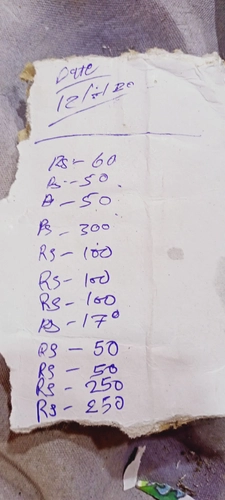 Date
12/1/20
Rs - 60
Rs - 50
Rs - 50
Rs - 300
Rs - 100
Rs - 100
Rs - 100
Rs - 170
Rs - 50
Rs - 50
Rs - 250
Rs - 250